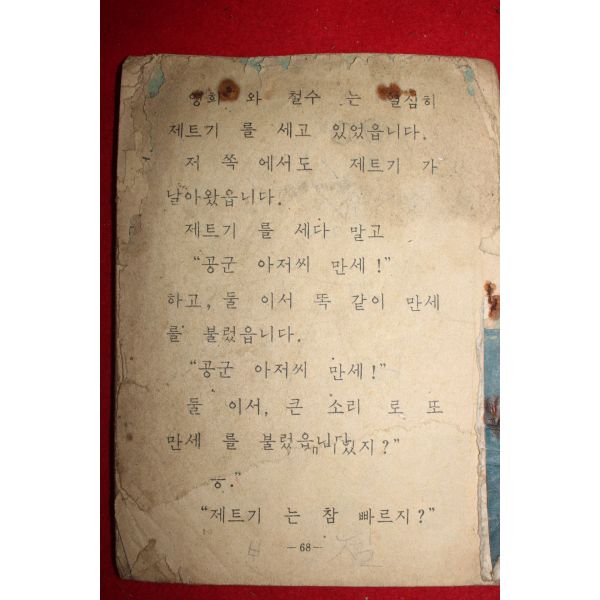 영희 와 철수 는 열심히
제트기 를 세고 있었읍니다.
저 쪽 에서도 제트기 가
날아왔읍니다.
제트기 를 세다 말고
“공군 아저씨 만세!”
하고, 둘 이서 똑 같이 만세
를 불렀읍니다.
“공군 아저씨 만세!”
둘 이서, 큰 소리 로 또
만세 를 불렀읍니다.
있지?”
ㅎ.”
“제트기 는 참 빠르지?”
—68—